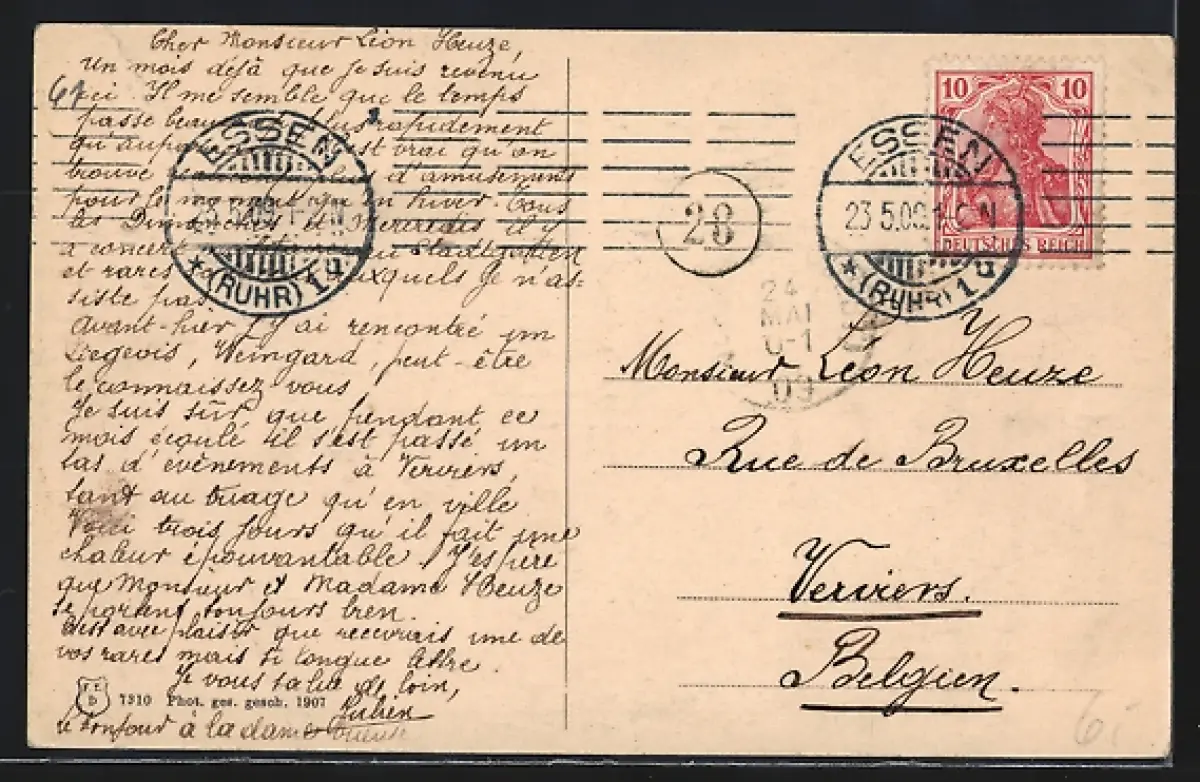 Cher Monsieur Léon Heuze,
Un mois déjà que je suis revenu
ici Il me semble que le temps
passe beau plus rapidement
qu'aupa est vrai qu'on
trouve plus d'amusements
pour le moment qu'en hiver. Tous
les Dimanches et Mercredis il y
a concert au Stadtgarten
et rares auxquels je n'as-
siste pas
Avant-hier j'y ai rencontré un
Liegeois, Weingard, peut-être
le connaissez vous
Je suis sûr que pendant ce
mois écoulé il s'est passé un
tas d'évènements à Verviers,
tant au tuage qu'en ville
Voici trois jours qu'il fait une
chaleur épouvantable. J'espère
que Monsieur et Madame Heuze
se portent toujours bien.
C'est avec plaisir que recevrais une de
vos rares mais si longue lettre.
Je vous salue de loin,
7310 Phot. ges. gesch. 1907
le bonjour à la dame
61
ESSEN
23.5.09.1-2N
* (RUHR) 1q
28
ESSEN
23.5.09.1-2N
* (RUHR) 1q
10 10
DEUTSCHES REICH
24
MAI
0-1
09
Monsieur Léon Heuze
Rue de Bruxelles
Verviers.
Belgien.
6.-